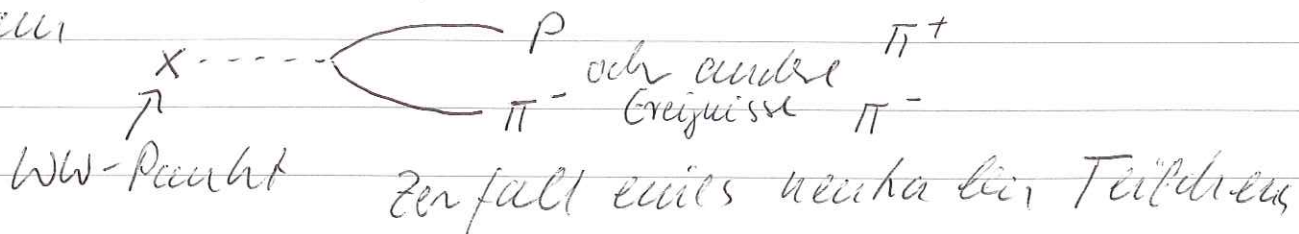 X P π+
oder andere
π- Ereignisse π-
WW-Punkt Zerfall eines neutralen Teilchens